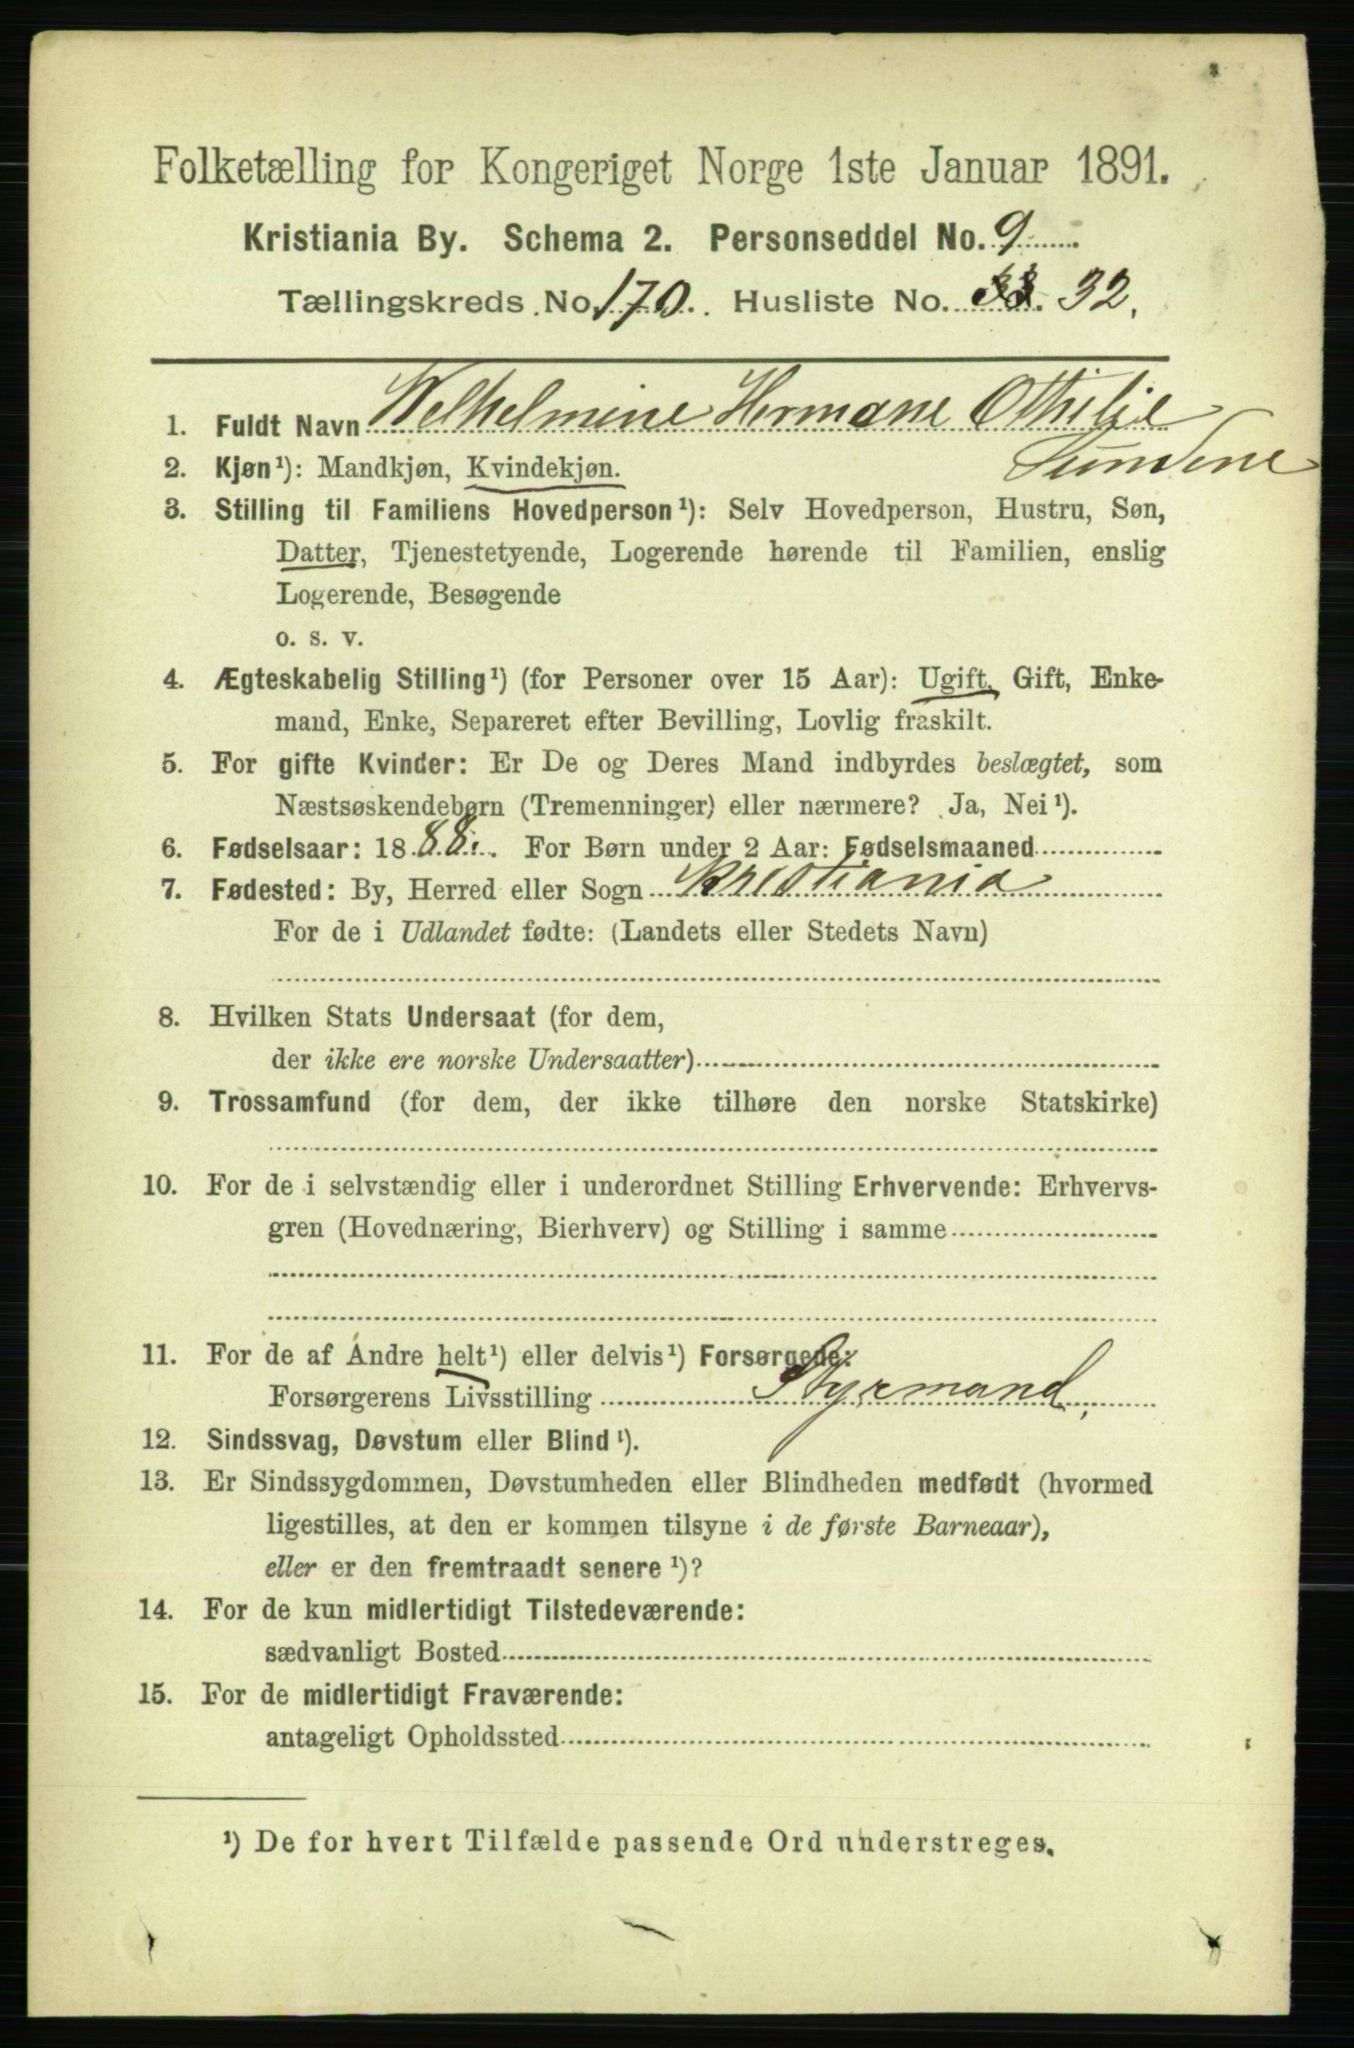 Folketælling for Kongeriget Norge 1ste Januar 1891.
Kristiania By. Schema 2. Personseddel No. 9
Tællingskreds No. 170. Husliste No. 32.
1. Fuldt Navn Welhelmine Hermane Othilie
2. Kjøn¹): Mandkjøn, Kvindekjøn.
3. Stilling til Familiens Hovedperson¹): Selv Hovedperson, Hustru, Søn,
Datter, Tjenestetyende, Logerende hørende til Familien, enslig
Logerende, Besøgende
o. s. v.
4. Ægteskabelig Stilling¹) (for Personer over 15 Aar): Ugift, Gift, Enke-
mand, Enke, Separeret efter Bevilling, Lovlig fraskilt.
5. For gifte Kvinder: Er De og Deres Mand indbyrdes beslægtet, som
Næstsøskendebørn (Tremenninger) eller nærmere? Ja, Nei¹).
6. Fødselsaar: 1888. For Børn under 2 Aar: Fødselsmaaned
7. Fødested: By, Herred eller Sogn Kristiania
For de i Udlandet fødte: (Landets eller Stedets Navn)
8. Hvilken Stats Undersaat (for dem,
der ikke ere norske Undersaatter)
9. Trossamfund (for dem, der ikke tilhøre den norske Statskirke)
10. For de i selvstændig eller i underordnet Stilling Erhvervende: Erhvervs-
gren (Hovednæring, Bierhverv) og Stilling i samme
11. For de af Andre helt¹) eller delvis¹) Forsørgede:
Forsørgerens Livsstilling Styrmand.
12. Sindssvag, Døvstum eller Blind¹).
13. Er Sindssygdommen, Døvstumheden eller Blindheden medfødt (hvormed
ligestilles, at den er kommen tilsyne i de første Barneaar),
eller er den fremtraadt senere¹)?
14. For de kun midlertidigt Tilstedeværende:
sædvanligt Bosted
15. For de midlertidigt Fraværende:
antageligt Opholdssted
¹) De for hvert Tilfælde passende Ord understreges.